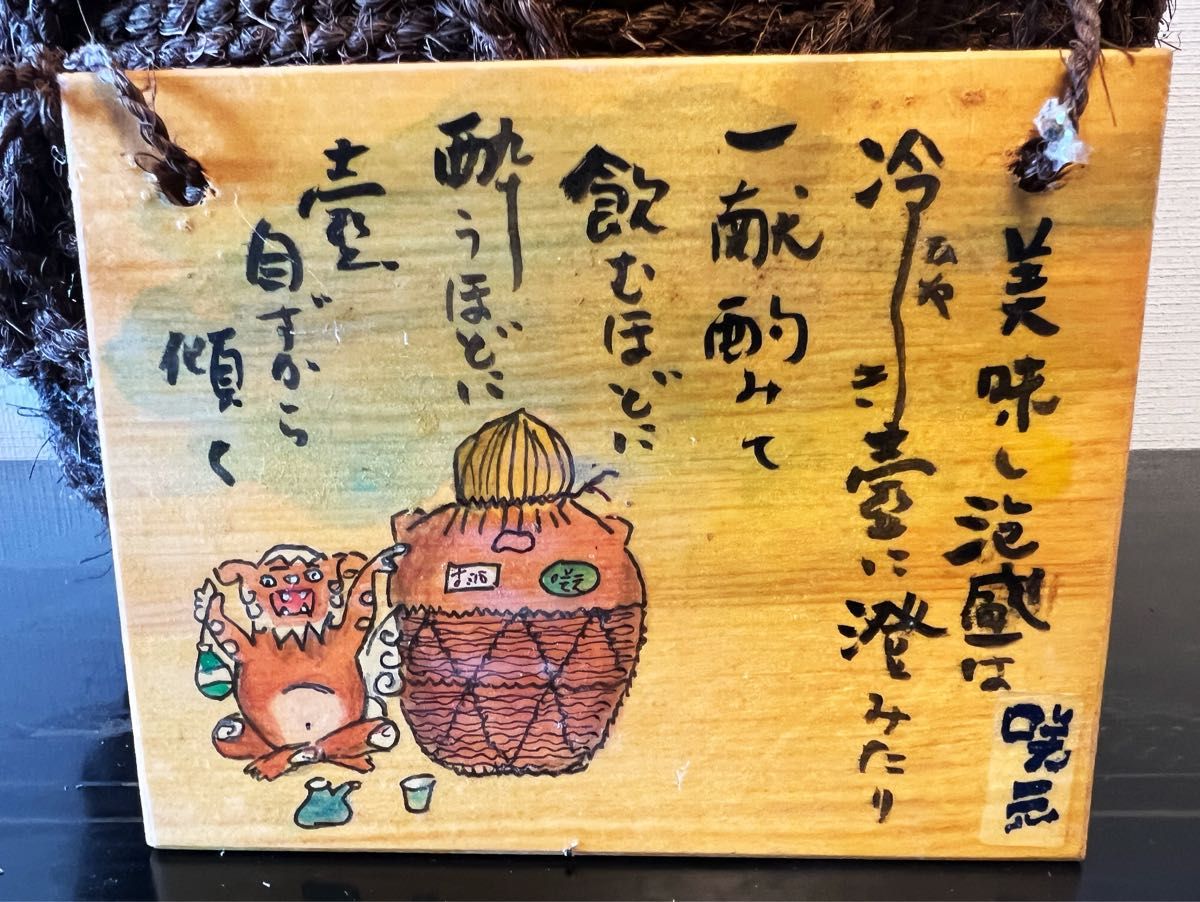 美味し泡盛は
冷ひやき壷に澄みたり
一献酌みて
飲むほどに
酔うほどに
壷
自ずから
傾く
咲元
お酒
咲元